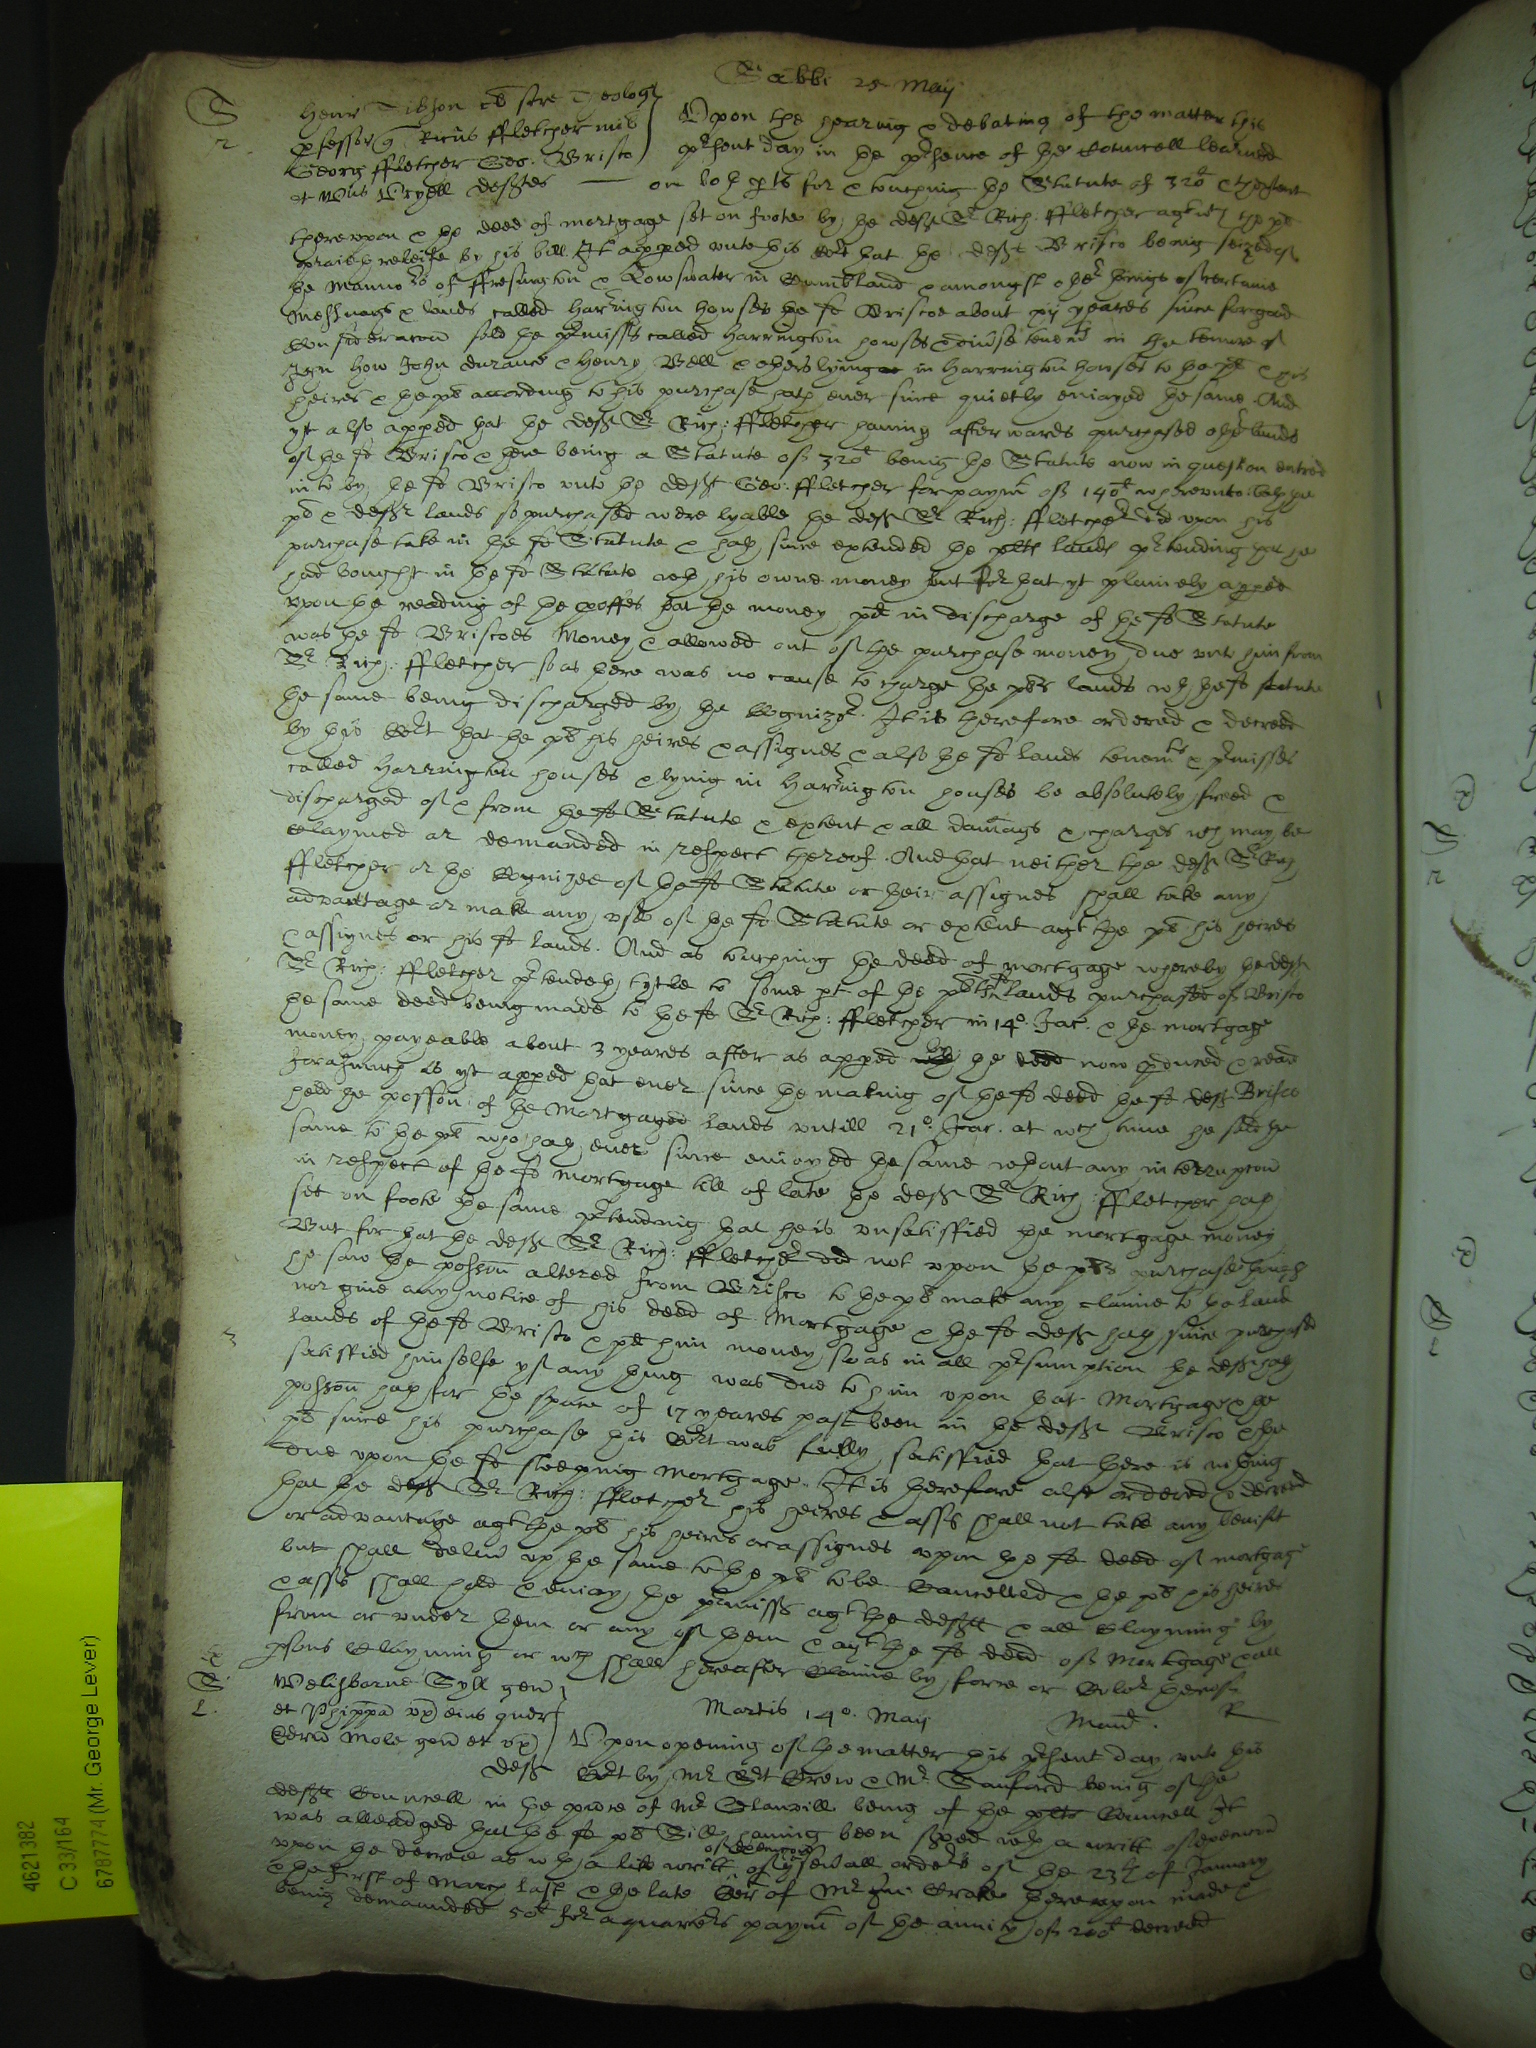 Sabbi 25 Maij
S
r
Henr Tibson sc̄e Theolog
pfessor q Ricūs ffletcher mil
Georg ffletcher Geo: Brisco
et Wīls deftes
Upon the hearing & debating of the matter this
pʳsent day in the pʳsence of the Councell learned
on both pts for & touching the Statute of 320ˡ & thextent
thereupon & the deed of mortgage set on foote by the deft Sʳ Rich: ffletcher agt wch the pt
prayeth releife by his bill It appeed unto this Cort that the deft Brisco being seized of
the Mannoʳs of ffresington & Lowswater in Cumbland & amongst other things of certaine
Messuags & lands called Harrington howses the sd Briscoe about xij yeares since for good
Consideracon sold the pʳmisses called Harrington howses in the tenure of
John How John durance & Henry Bell & others lying in Harrington houses to the pt & his
heires & the pt according to his purchase hath ever since quietly enioyed the same And
yt also appeed that the deft Sʳ Rich: ffletcher having afterwards purchased other lands
of the sd Brisco & there being a Statute of 320ˡ being the Statute now in question entred
into by the sd Brisco unto the deft Geo: ffletcher for paymt of 140ˡ whereunto both the
pt & defts lands so purchased were lyable the deft Sʳ Rich: ffletcher did upon his
purchase take in the sd Statute & hath since extended the plts lands pʳtending that he
had bought in the sd Statute wth his owne money but for that yt plainely appeed
upon the reading of the proffes that the money pd in discharge of the sd Statute
was the sd Briscoes Money & allowed out of the purchase money due unto him from
Sʳ Rich: ffletcher so as there was no cause to charge the pts lands wth the sd statute
the same being discharged by the Cognizoʳ. It is therefore ordered & decreed
by this Cort that the pt his heires & assignes & also the sd lands tenemts & pʳmisses
called Harrington houses & lying in Harrington houses be absolutely freed &
discharged of & from the sd Statute & extent & all damags & charges wch may be
Claymed or demanded in respect thereof. And that neither the deft Sʳ Rich
ffletcher or the Cognizee of the sd Statute or their assignes shall take any
advantage or make any use of the sd Statute or extent agt the pt his heires
& assignes or his sd lands. And as touching the deed of mortgage whereby the deft
Sʳ Rich: ffletcher pʳtendeth tytle to some pt of the pts lands purchased of Brisco
the same deed being made to the sd Sʳ Rich: ffletcher in 14º. Jac. & the mortgage
money payeable about 3 yeares after as appeed by the deed now pduced & read
forasmuch as yt appeed that ever since the making of the sd deed the sd deft Brisco
held the possōn of the Mortgaged lands untill 21º. Jac. at wch time he sold the
same to the pt who hath ever since enioyed the same wthout any interrupcon
in respect of the sd mortgage till of late the deft Sʳ Rich: ffletcher hath
set on foote the same pʳtending that he is unsatisfied the mortgage money
But for that the deft Sʳ Rich: ffletcher did not upon the pts purchase
he saw the possōn altered from Brisco to the pt make any claime to the land
nor give any notice of his deed of Mortgage & the sd deft hath since purchased
lands of the sd Brisco & pd him money so as in all pʳsumption the deft hath
satisfied himselfe yf any thing was due to him upon that Mortgage & the
possōn hath for the space of 17 yeares past been in the deft Brisco & the
pt since his purchase this Cort was fully satisfied that there is nothing
due upon the sd sleeping Mortgage. It is therefore also ordered & decreed
that the deft Sʳ Rich: ffletcher his heires & asss shall not take any benifit
or advantage agt the pt his heires or assignes upon the sd deed of mortgage
but shall deliv up the same to the pt to be Cancelled & the pt his heires
& asss shall hold & enioy the pʳmisses agt the defts & all Clayming by
from or under them or any of them & agt the sd deed of Mortgage & all
psons Clayming or wch shall hereafter Claime by force or Coloʳ thereof
S
L
Welisborne Syll gen
et Phippa ux eius quer
Edrū Mole gen et ux
deft
Martis 14º. Maij
Mand. R
Upon opening of the matter this pʳsent day unto this
Cort by Mʳ Sᵗ Crew & Mʳ Sanford being of the
defts Councell in the pʳsce of Mʳ Glanvill being of the plts Councell It
was alleadged that the sd pt Sill having been sved wth a writt of execucon
upon the decree as wth a like writt of execucon of sevall orders of the 23th of January
& the first of March last & the late Cert of Mʳ thereupon made &
being demaunded 50ˡ for a quarters paymt of the annity of 200ˡ decreed
4621382
C 33/164
6787774 (Mr. George Lever)